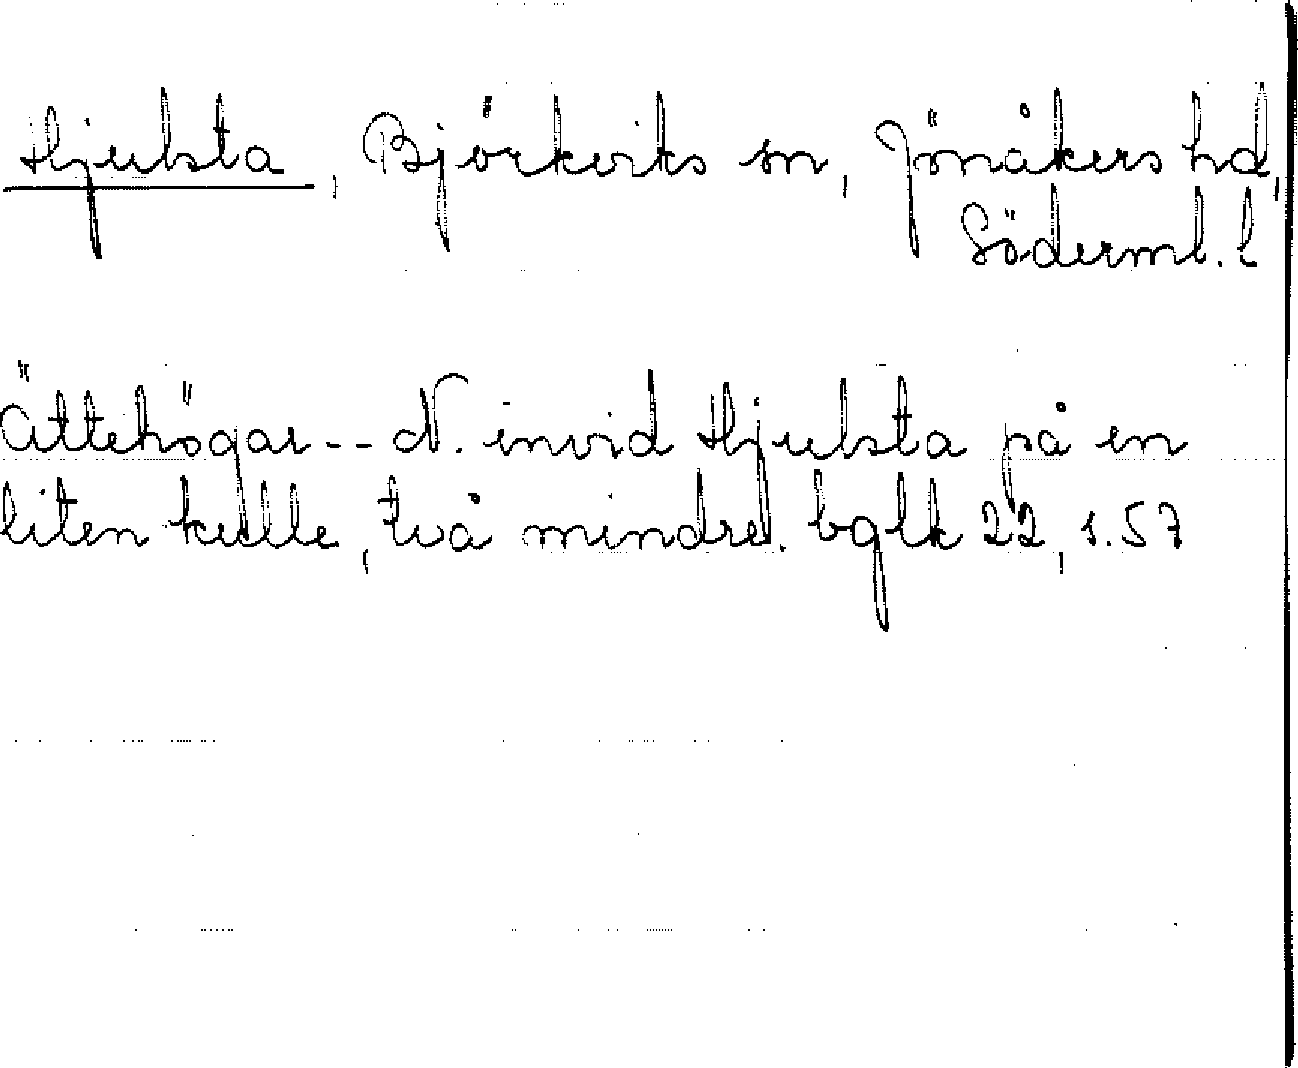 Hjulsta, Björkviks sn, Jönåkers hd,
Söderml. l
Ättehögar -- N. invid Hjulsta på en
liten kulle, två mindre. bglk 22, s. 57